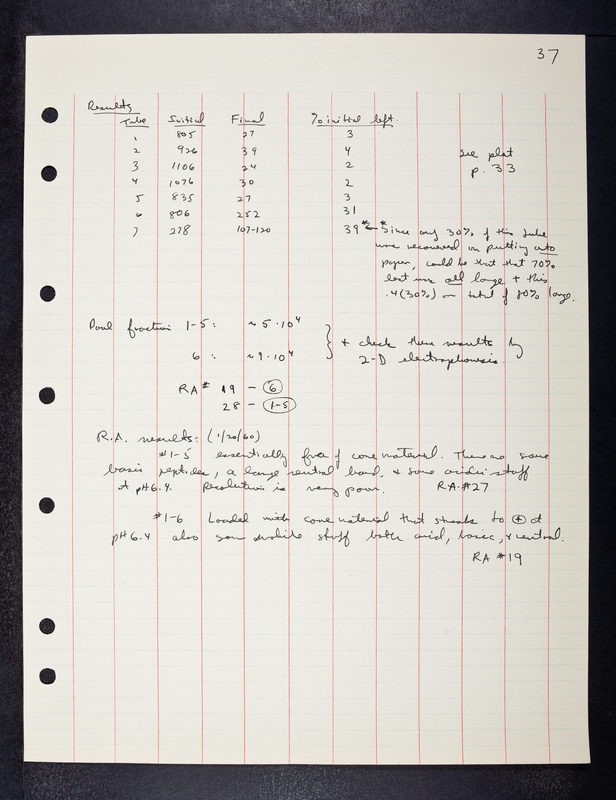 37
Results
Tube Initial Final % initial left.
1 805 27 3
2 926 39 4
3 1106 24 2
4 1076 30 2
5 835 27 3
6 806 252 31
7 278 107-120 39*
see plot
p. 33
* Since only 30% of this tube
was recovered on putting onto
paper, could be that that 70%
lost was all large + this
.4(30%) on total of 80% large.
Pool fractions 1-5: ~5·10⁴
6: ~9·10⁴
+ check these results by
2-D electrophoresis.
RA# 19 – 6
28 – 1-5
R.A. results: (1/20/60)
#1-5 essentially free of core material. There are some
basic peptides, a large neutral band, & some acidic stuff
at pH 6.4. Resolution is very poor. R.A.#27
#1-6 Loaded with core material that streaks to ⊕ at
pH 6.4 also some mobile stuff both acid, basic, & neutral.
RA #19